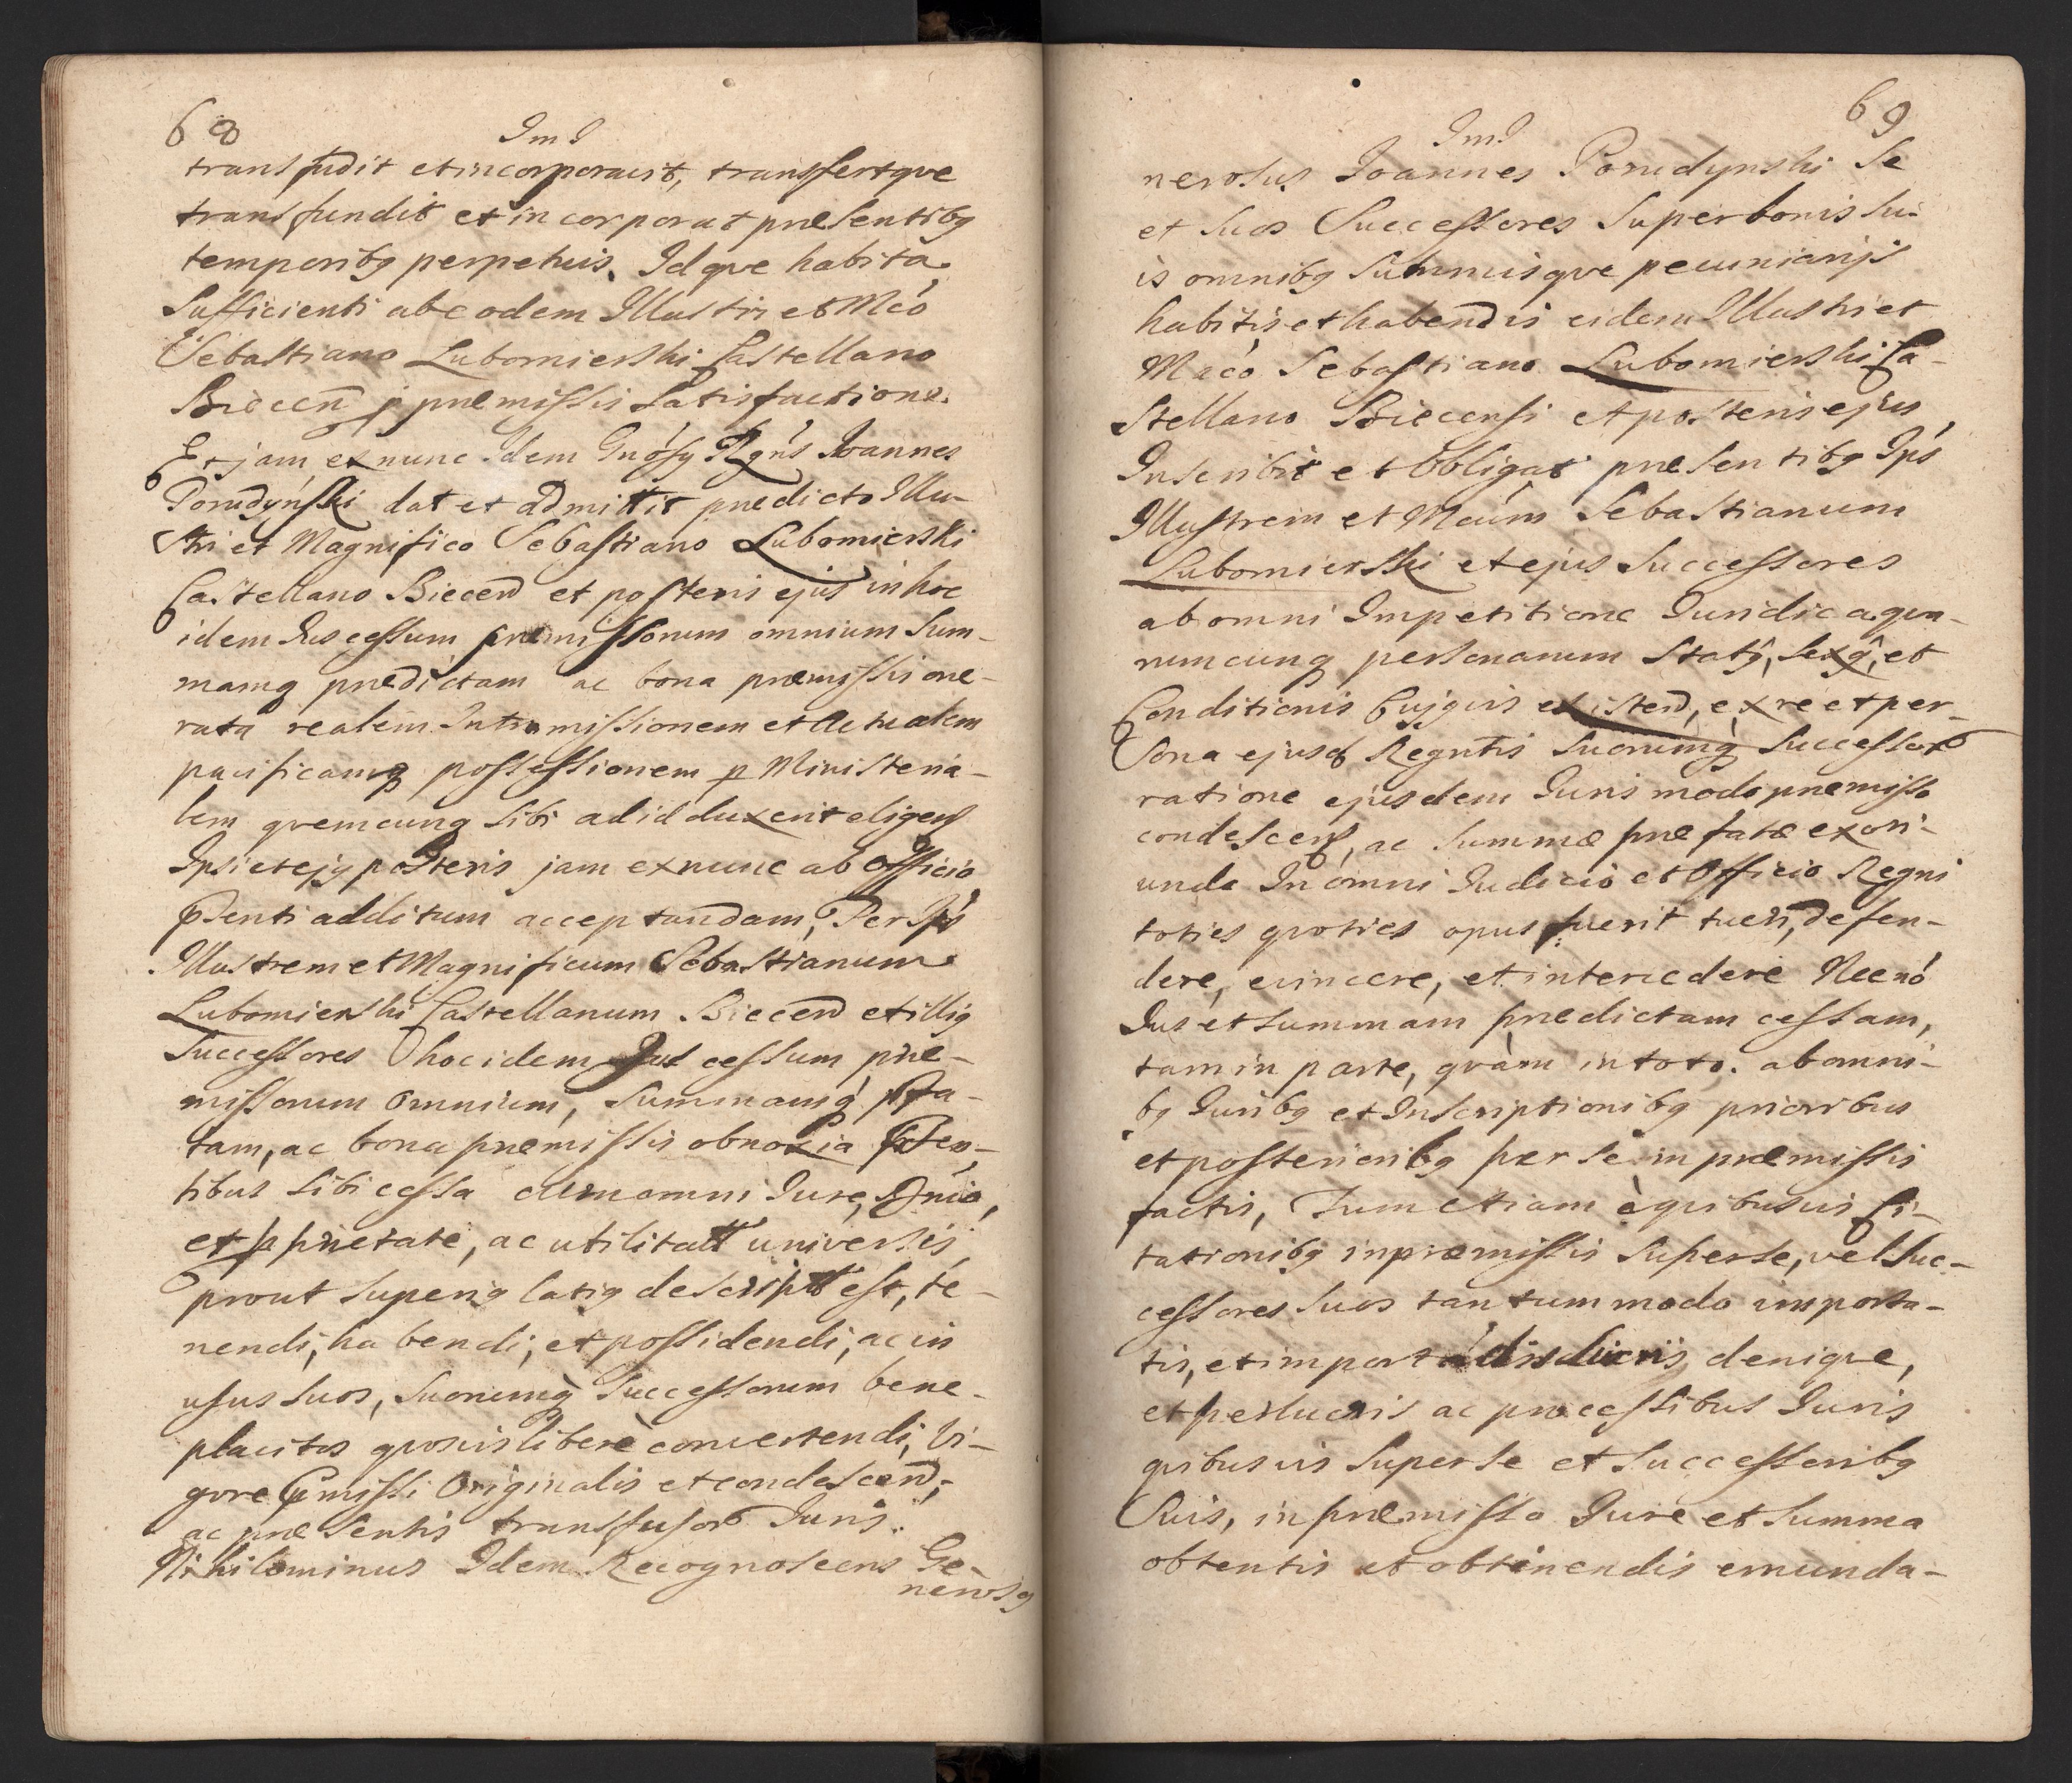 68
ImJ
transfudit et incorporauit, transfertque
transfundit et incorporat præsentibq
temporibq perpetuis. Idque habita
Sufficienti ab eodem Illustri et Mco
Sebastiano Lubomierski Castellano
Biecen p præmissis Satisfactione.
Et jam ex nunc Idem Gnosq Rgns Joannes
Porudynski dat et admittit prædicto Illu-
stri et Magnifico Sebastiano Lubomierski
Castellano Biecen et posteris ejus in hoc
idem Jus cessum præmissorum omnium Sum-
mamq prædictam ac bona præmissis one-
rata realem Intromissionem et Actualem
pacificamq possessionem p Ministeria-
lem quemcunq Sibi ad id duxerit eligen
Ipsi et ejq posteris jam ex nunc ab Officio
Psenti additum acceptandam, Per Ips
Illustrem et Magnificum Sebastianum
Lubomierski Castellanum Biecen et illiq
Successores hoc idem Jus cessum præ-
missorum omnium, Summamq pfa-
tam, ac bona præmissis obnoxia Psen-
tibus Sibi cessa cum omni Jure, Dnio,
et pprietate, ac utilitatt universis,
prout Superiq latiq descriptt est, te-
nendi, habendi, et possidendi, ac in
usus suos, Suorumq Successorum bene-
placitos quosvis libere convertendi, Vi-
gore Pmissi Originalis et condescen,
ac præsentis transfusor Juris.
Nihilominus Idem Recognoscens Ge-
nerosq
69
ImJ
nerosus Joannes Porudynski Se
et Suos Successores Super bonis Su-
is omnibq Summisque pecuniarijs
habitis et habendis eidem Illustri et
Maco Sebastiano Lubomierski Ca-
stellano Biecensi et posteris ejus
Inscribit et Obligat præsentibq Ips
Illustrem et Mcum Sebastianum
Lubomierski et ejus Successores
ab omni Impetitione Juridica qua-
rumcunq personarum Statq, Sexq, et
Conditionis Cujqvis existen, ex re et per-
sona ejusd Regntis Suorumq Successor
ratione ejusdem Juris modo præmisso
condescen, ac Summæ præfatæ exori-
unda In omni Judicio et Officio Regni
toties quoties opus fuerit tueri, defen-
dere, evincere, et intercedere Necno
Jus et Summam prædictam cessam,
tam in parte, quam in toto. ab omni-
bq Juribq et Inscriptionibq prioribus
et posterioribq per Se in præmissis
factis, Tum etiam è quibusvis Ci-
tationibq in præmissis Super se, vel Suc-
cessores Suos tantummodo importa-
tis, et importádis lucris denique,
et perlucris ac processibus Juris
quibusvis Super Se et Successoribq
Suis, in præmisso Jure et Summa
obtentis et obtinendis emunda-